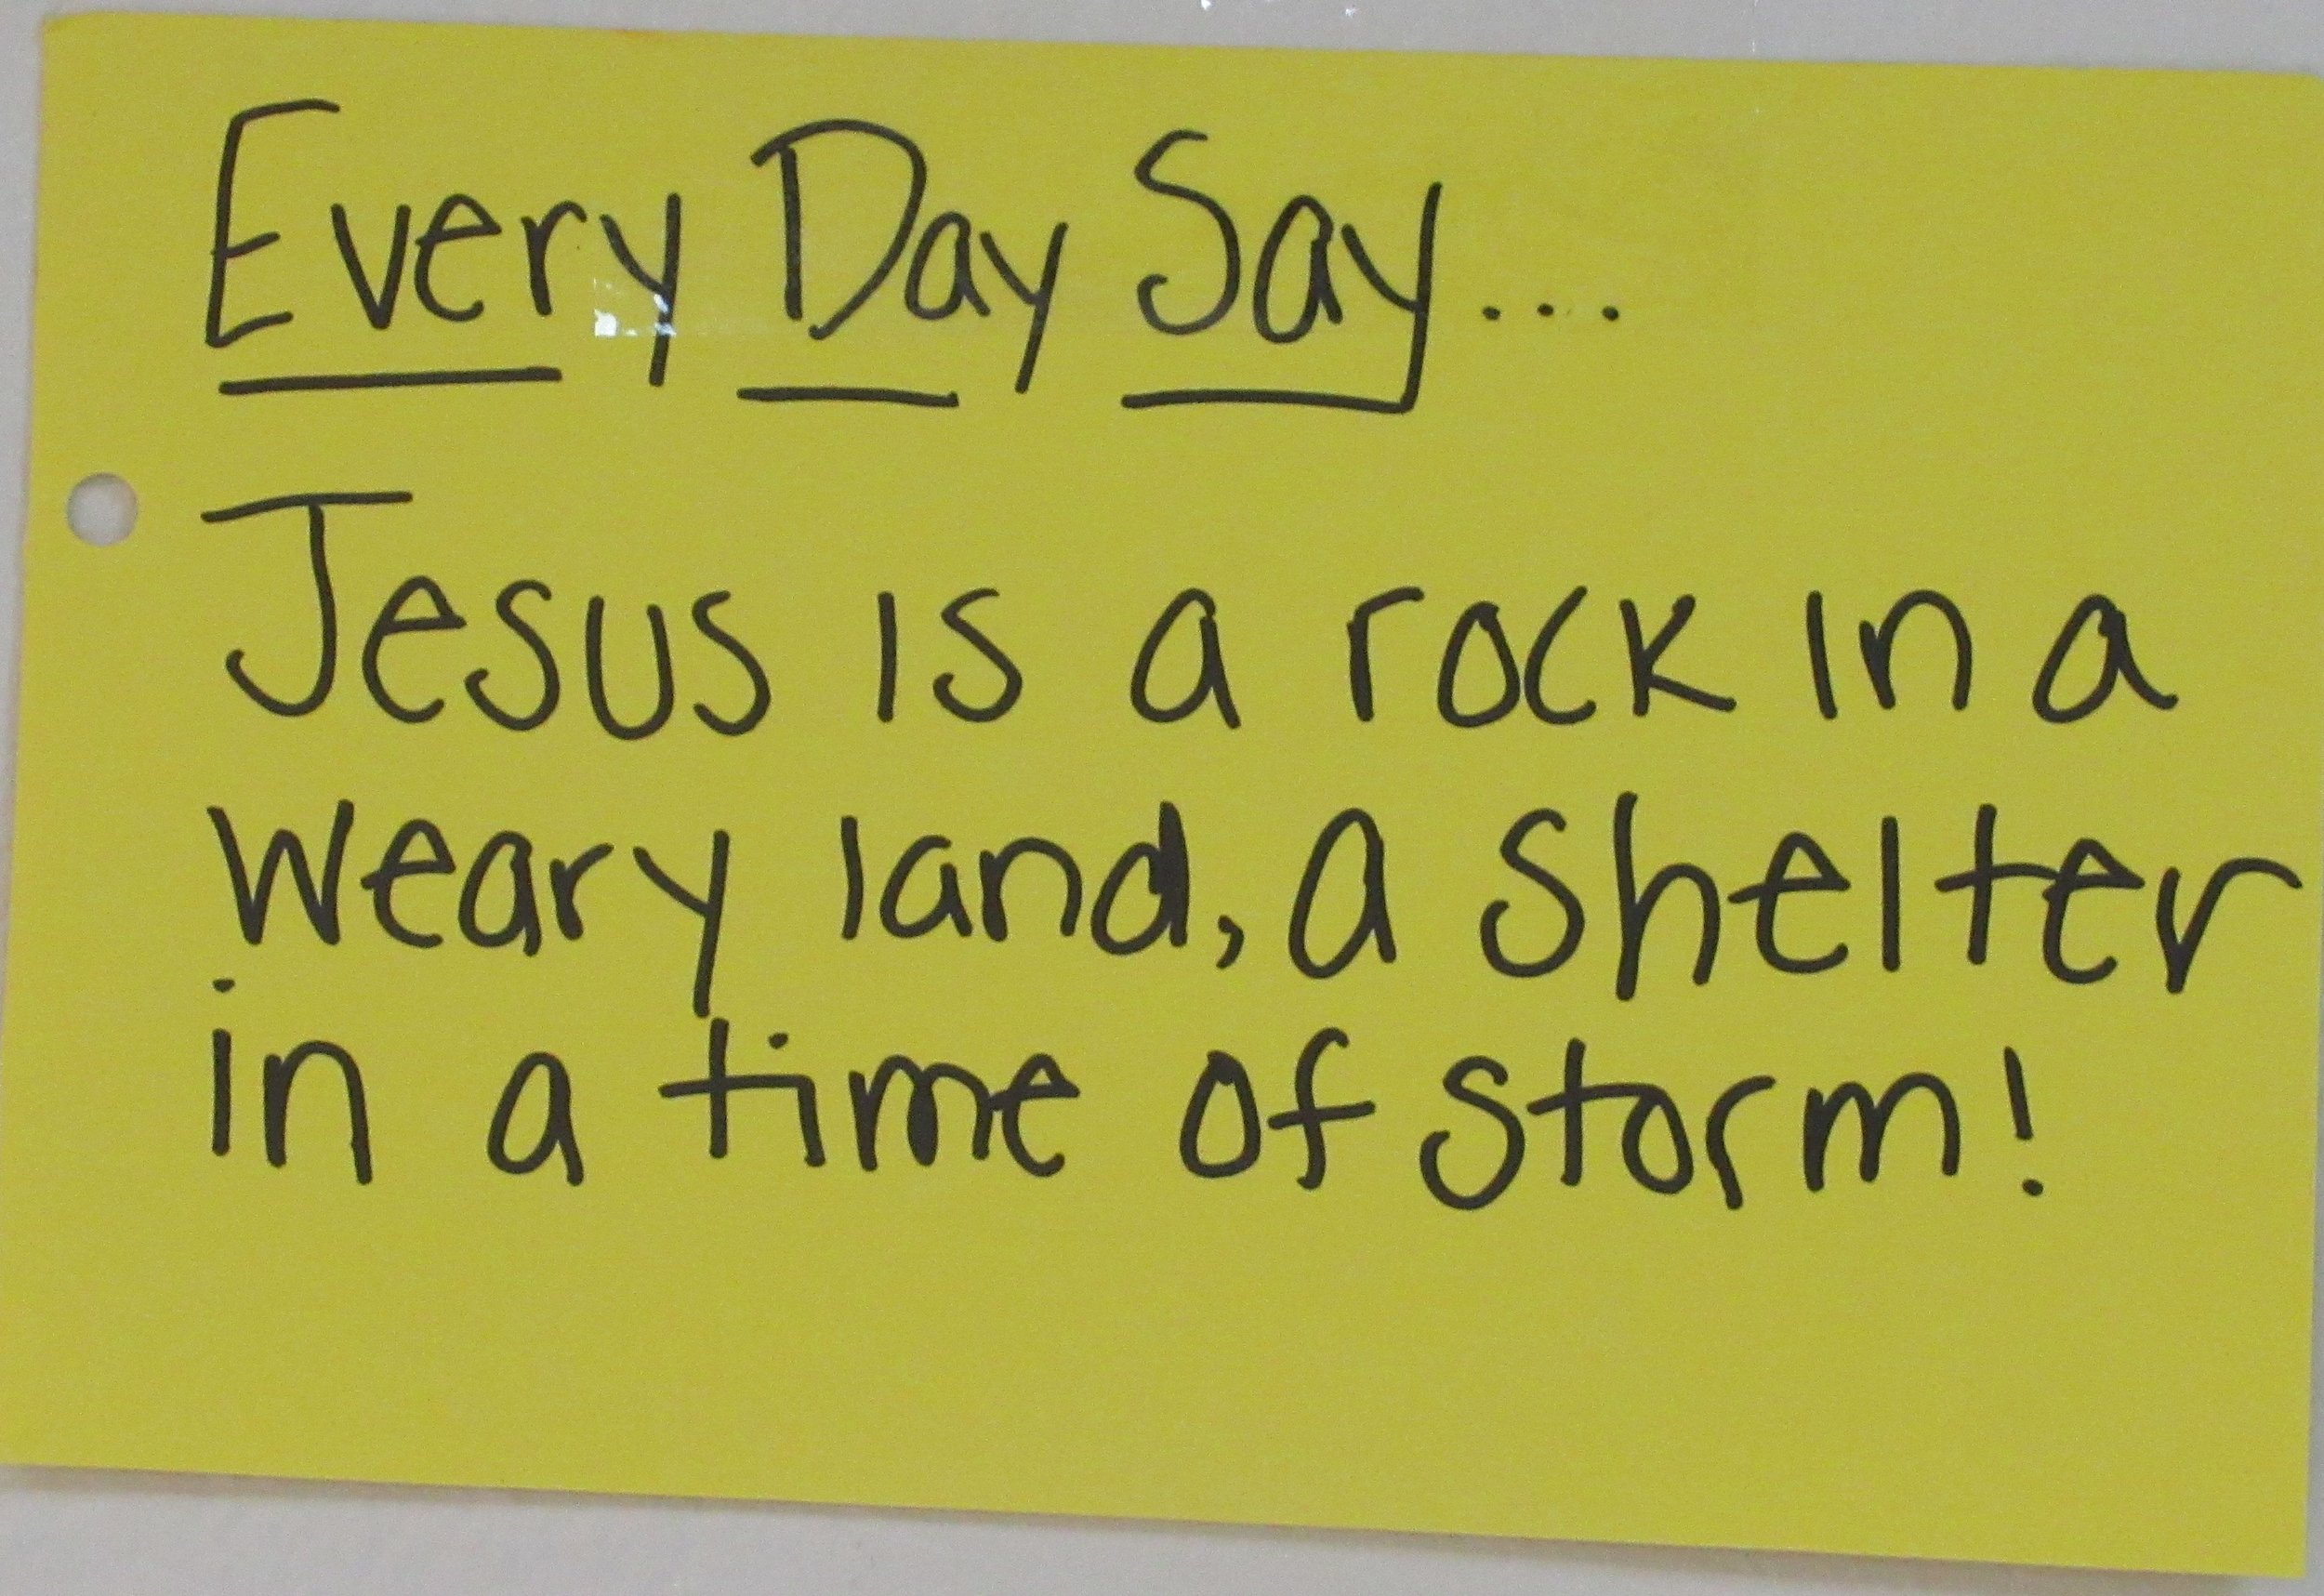 Every Day Say....
Jesus is a rock in a
weary land, a shelter
in a time of storm!